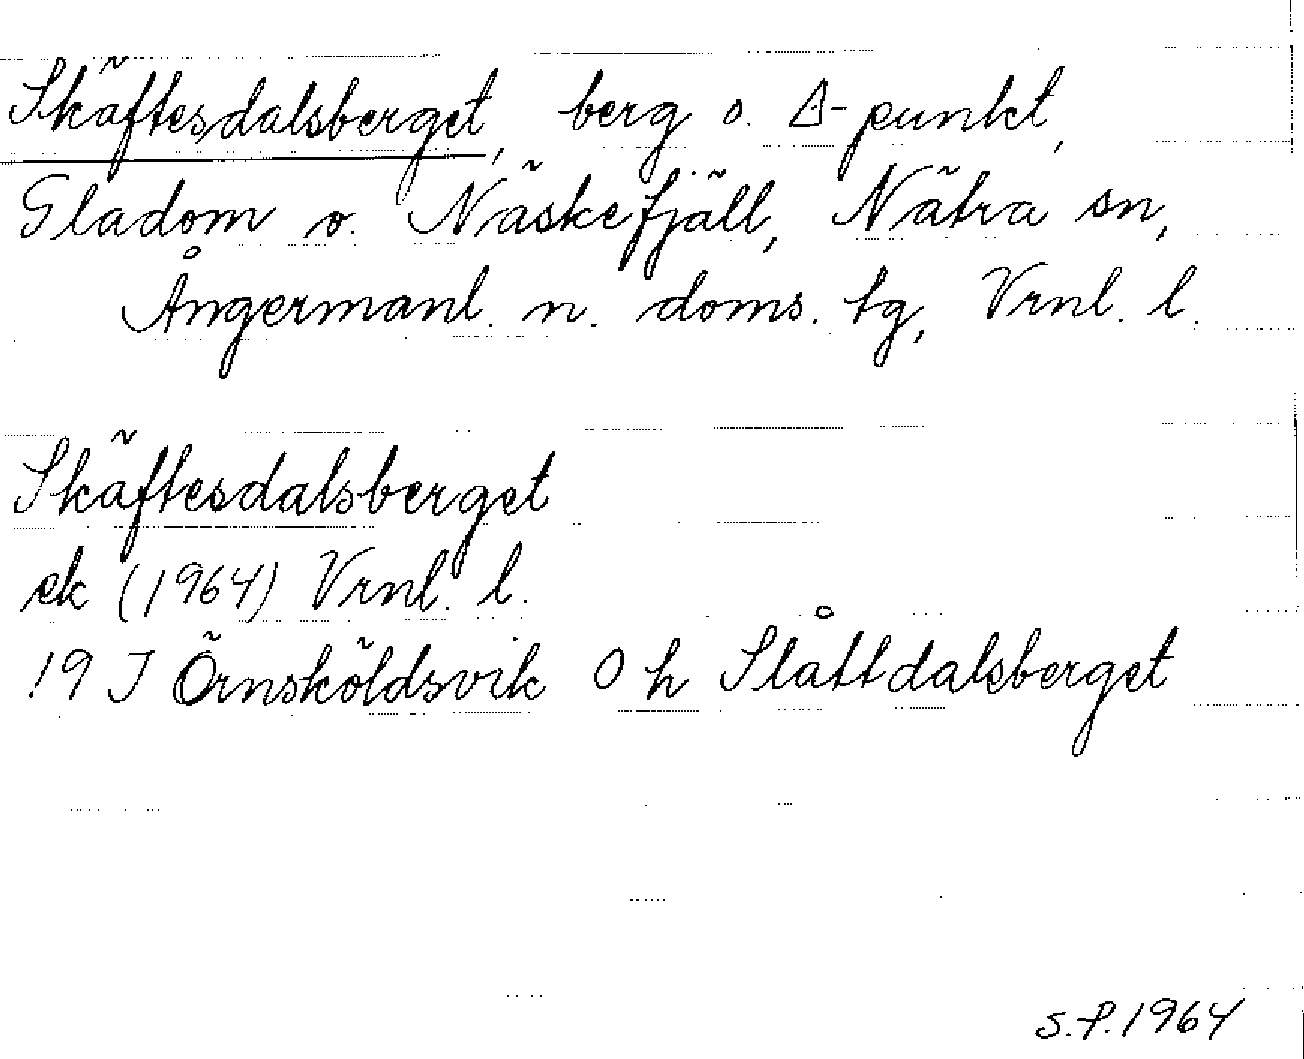 Skäftesdalsberget, berg o. Δ-punkt,
Gladom o. Näskefjäll, Nätra sn,
Ångermanl. n. doms. tg, Vrnl. l.
Skäftesdalsberget
ek (1964) Vrnl. l.
19 J Örnsköldsvik O h Slåttdalsberget
S.P. 1964